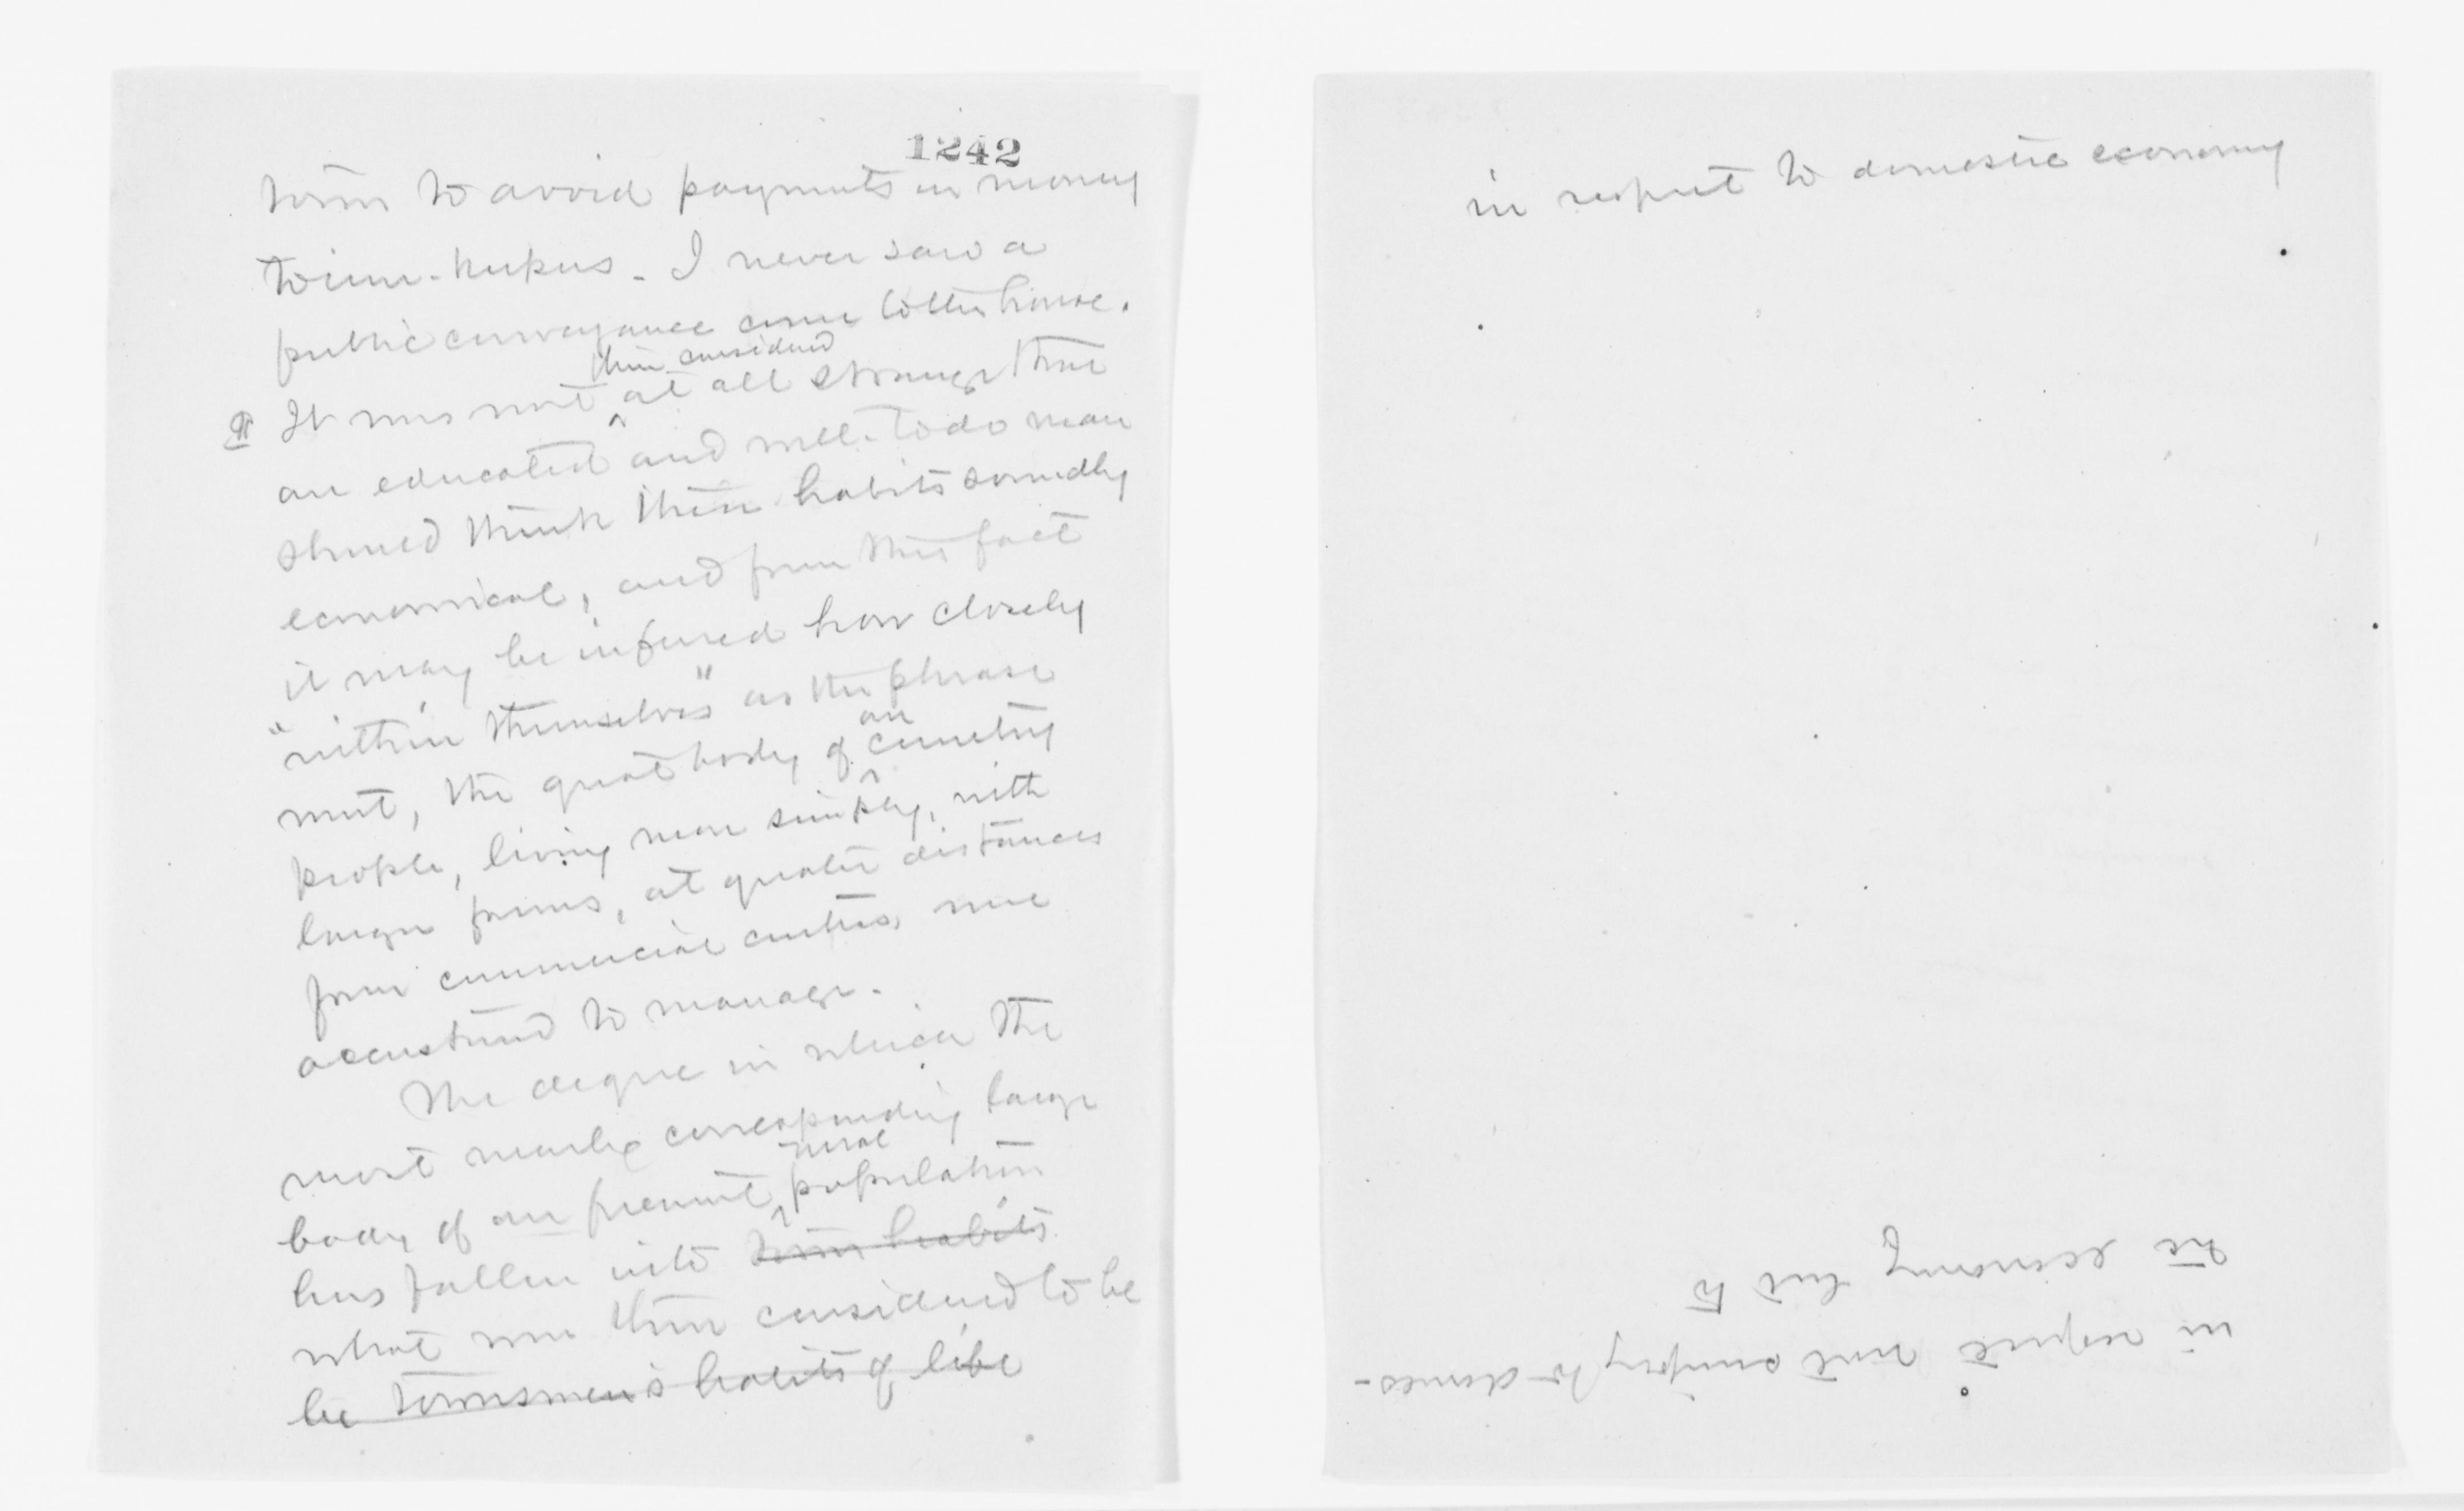 1242
town to avoid payments in money
to inn-keepers. I never saw a
public conveyance come to the house.
then considered
¶ It was not ^ at all strange that
an educated and well-to do man
should think these habits soundly
economical, and from this fact
it may be inferred how closely
"within themselves" as the phrase
our
went, the great body of ^ country
people, living more simply, with
larger farms, at greater distances
from commercial centres, were
accustomed to manage.
The degree in which the
most nearly corresponding large
rural
body of our present ^ population
has fallen into town habits
what were then considered to be
be townsmen's habits of life
in respect to domestic economy
in respect not simply to domes-
tic economy but to